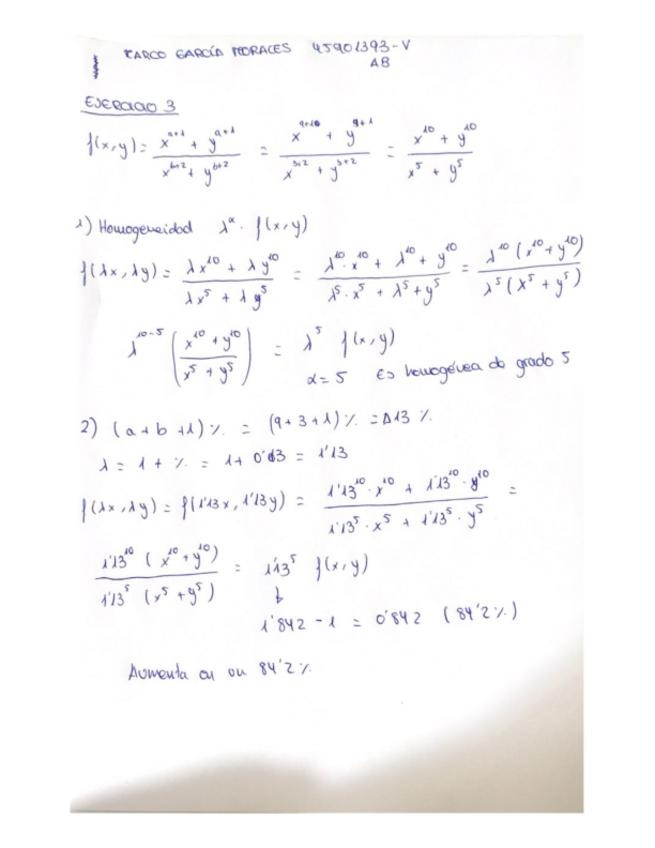 MARCO GARCÍA MORALES 45901393-V
AB
EJERCICIO 3
f(x,y) = (x^(a+1) + y^(a+1)) / (x^(b+2) + y^(b+2)) = (x^(9+10) + y^(9+1)) / (x^(3+2) + y^(3+2)) = (x^10 + y^10) / (x^5 + y^5)
1) Homogeneidad λ^α · f(x,y)
f(λx, λy) = (λx^10 + λy^10) / (λx^5 + λy^5) = (λ^10 · x^10 + λ^10 + y^10) / (λ^5 · x^5 + λ^5 + y^5) = (λ^10 (x^10 + y^10)) / (λ^5 (x^5 + y^5))
λ^(10-5) ((x^10 + y^10) / (x^5 + y^5)) = λ^5 f(x,y)
α = 5 Es homogénea de grado 5
2) (a + b + 1) % = (9 + 3 + 1) % = Δ13 %
λ = 1 + % = 1 + 0'13 = 1'13
f(λx, λy) = f(1'13x, 1'13y) = (1'13^10 · x^10 + 1'13^10 · y^10) / (1'13^5 · x^5 + 1'13^5 · y^5) =
(1'13^10 (x^10 + y^10)) / (1'13^5 (x^5 + y^5)) = 1'13^5 f(x,y)
1'842 - 1 = 0'842 (84'2%)
Aumenta en un 84'2%